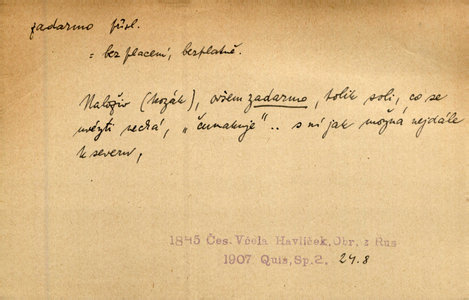 zadarmo přísl.
= bez placení, bezplatně.
Naloživ (kozák), ovšem zadarmo, tolik soli, co se
uvézti nechá, „čumakuje".. s ní jak možná nejdále
k severu,
1845 Čes. Včela Havlíček, Obr. z Rus
1907 Quis, Sp. 2. 24.8